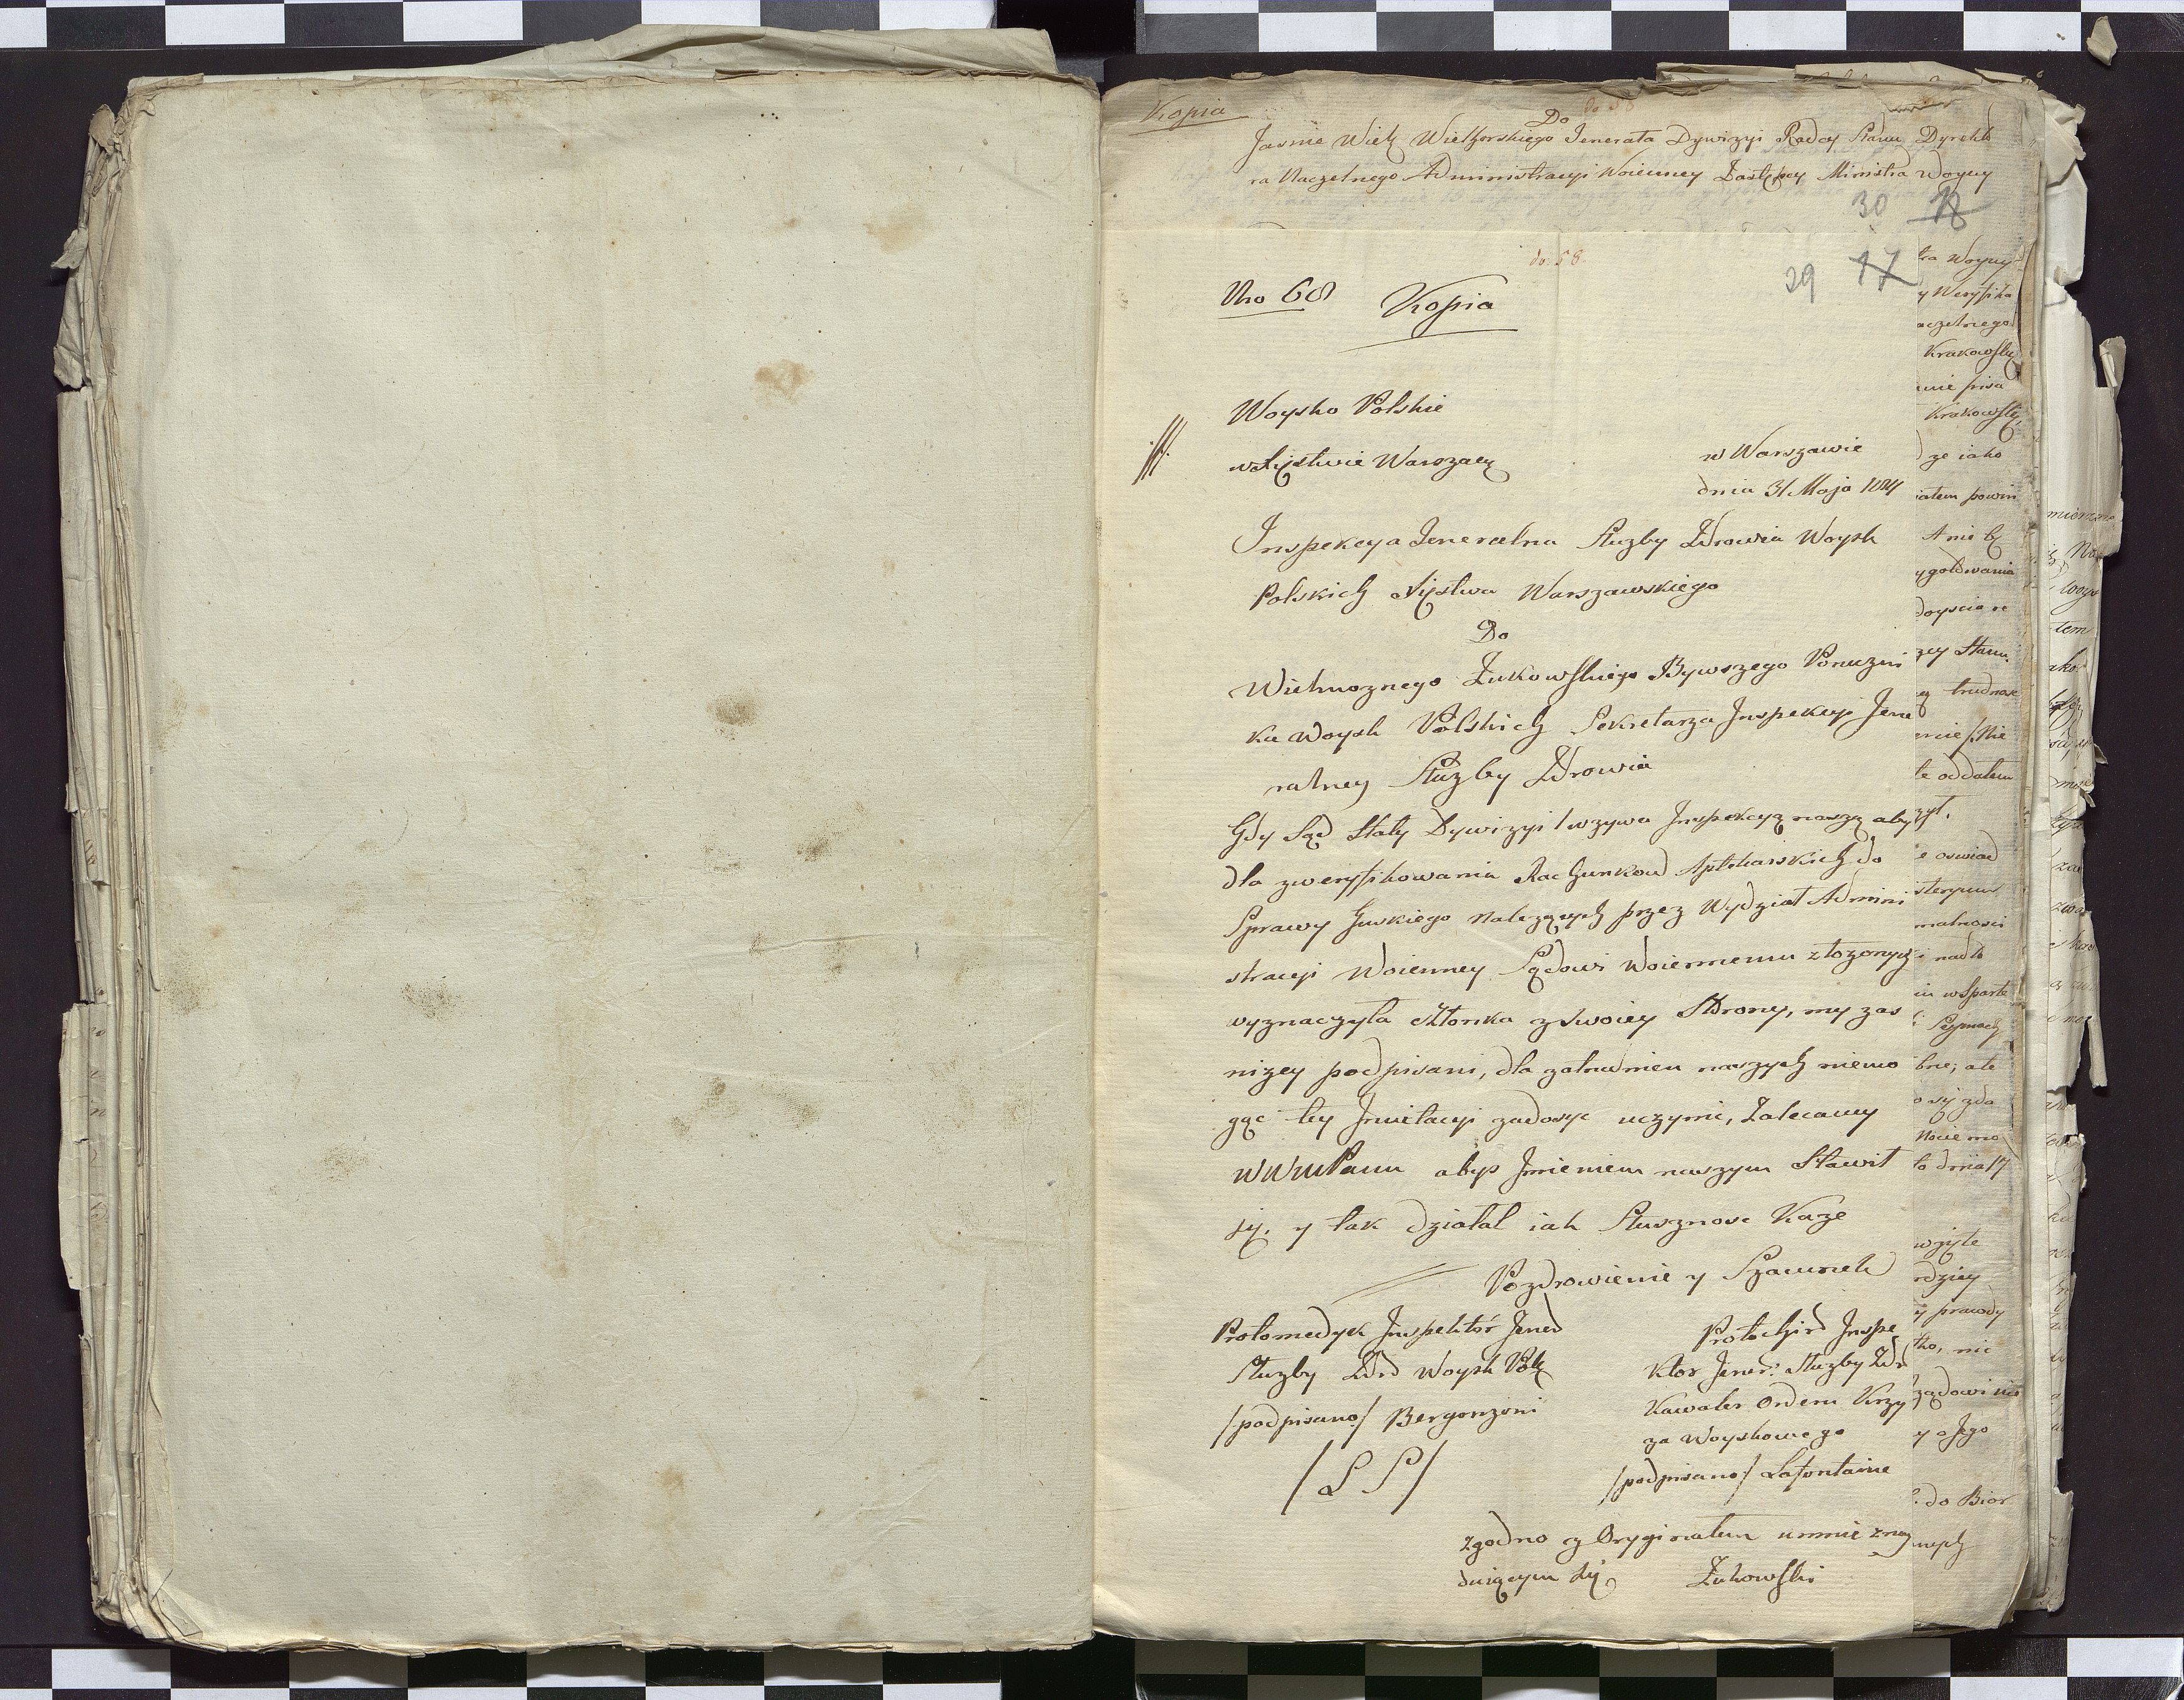 Kopia
Do
Jasnie Wielz Wielhorskiego Jenerała Dywizyi Radcy Stanu Dyrekto
ra Naczelnego Administracyi Woienney Zastępcy Ministra Woyny
30 18
do 58.
29 17
Nro 68 Kopia
Woysko Polskie
w Xięstwie Warszaw
w Warszawie
dnia 31 Maja 1811
Inspekcya Jeneralna Służby Zdrowia Woysk
Polskich Xięstwa Warszawskiego
Do
Wielmoznego Zukowskiego Bywszego Poruczni
ka Woysk Polskich Sekretarza Inspekcyi Jene
ralney Służby Zdrowia
Gdy Sąd Stały Dywizyi 1 wzywa Inspekcyą naszą aby
dla zweryfikowania Rachunkow Aptekarskich do
Sprawy należących przez Wydział Admini
stracyi Woienney Sądowi Woiennemu złozonych
wyznaczyła członka z swoiey Strony, my zas
nizey podpisani, dla zatrudnien naszych niemo
gąc tey Invitacyi zadosyc uczynic, Zalecamy
WWmPanu abys Imieniem naszym Stawił
się, y tak działał iak Słusznosc Kaze
Pozdrowienie y Szacunek
Protomedyk Inspektór Jener
Służby Zdro Woysk Pol
/podpisano/ Bergonzoni
/L S/
Protochir Inspe
ktor Jener: Służby Zdr
Kawaler Orderu Krzy
za Woyskowego
/podpisano/ Lafontaine
zgodno z Oryginałem umnie znay
duiącym się Zukowski
tra Woyny
y Weryfika
aczelnego
Krakowsk
Krakowsk
ze iako
iałem powin
A nie by
ygotowania
doyscia
zey Stanu
trudnosc
te oddałem
zył.
e oswiad
steryum
malnosci
nadto
wsparte
Seymach
bne; ale
o się zda
Nocie mo
to dnia 17
wzięte
rdziey
y prawdy
tko, nic
ządowi
y o Jego
do Bior